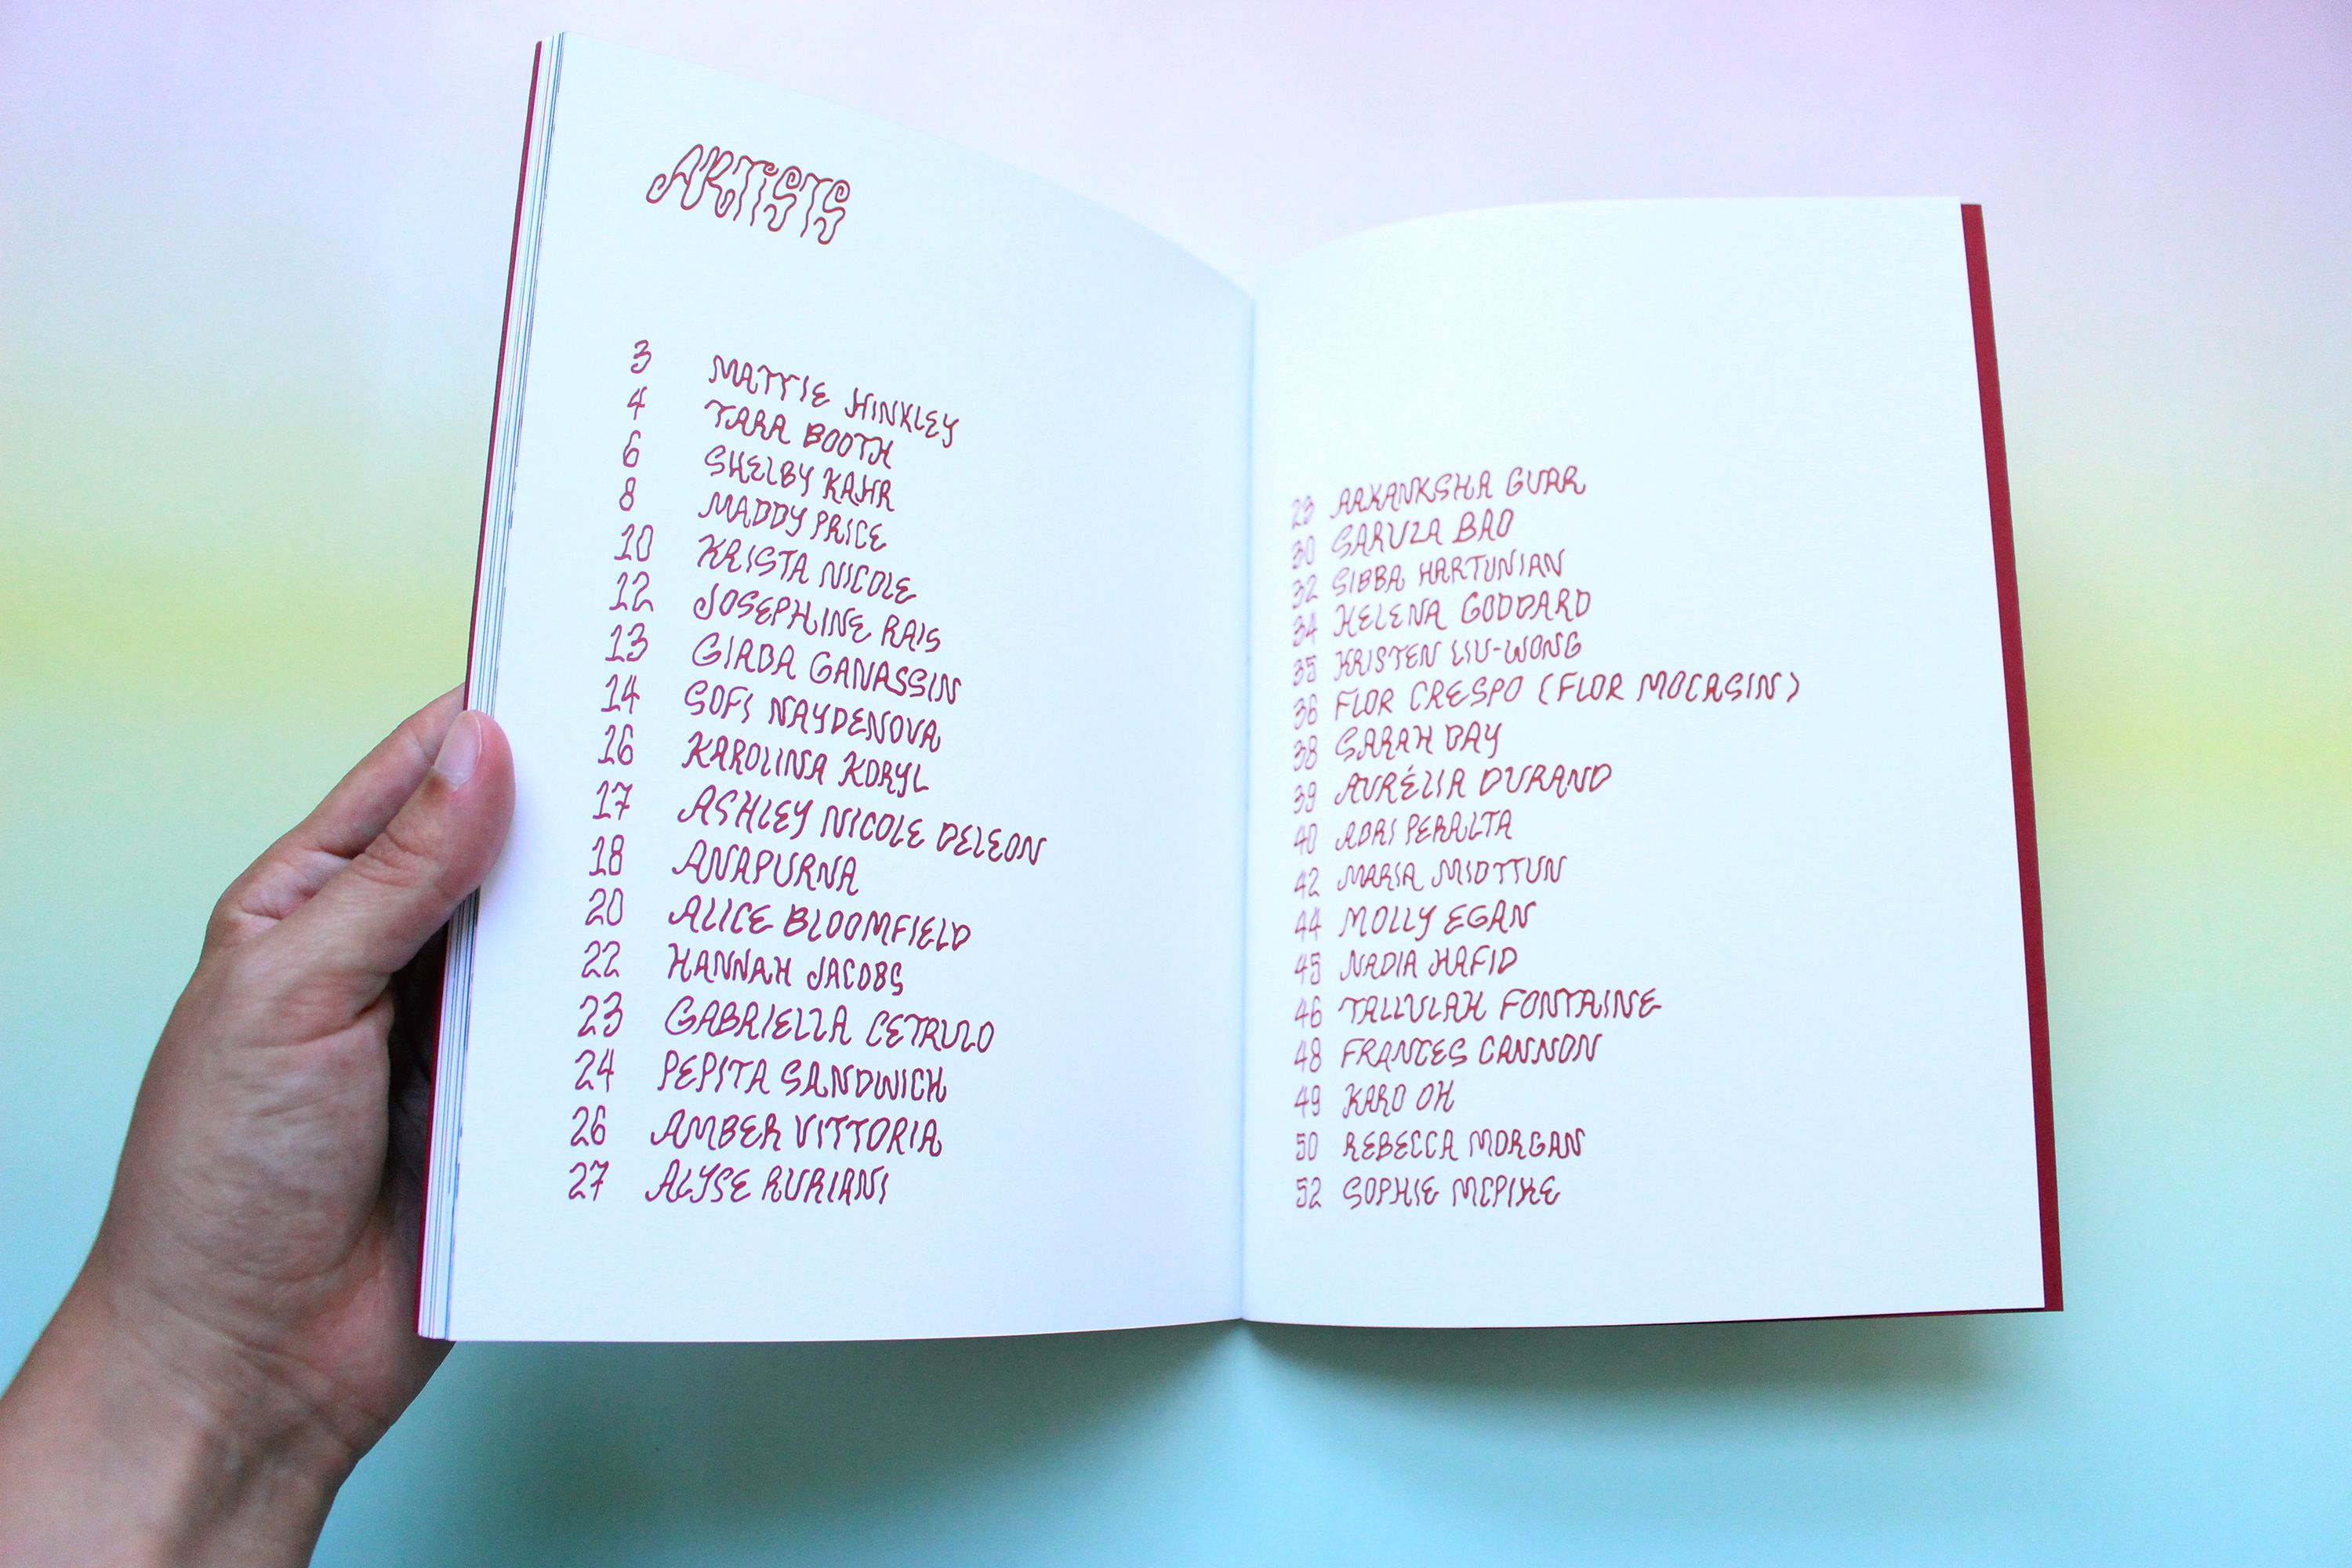 ARTISTS
3 MATTIE HINKLEY
4 TARA BOOTH
6 SHELBY KAHR
8 MADDY PRICE
10 KRISTA NICOLE
12 JOSEPHINE RAIS
13 GIADA GANASSIN
14 SOFI NAYDENOVA
16 KAROLINA KORYL
17 ASHLEY NICOLE DELEON
18 ANAPURNA
20 ALICE BLOOMFIELD
22 HANNAH JACOBS
23 GABRIELLA CETRULO
24 PEPITA SANDWICH
26 AMBER VITTORIA
27 ALYSE RURIANI
AAKANKSHA GUAR
30 SARULA BAO
32 SIBBA HARTUNIAN
34 HELENA GODDARD
35 KRISTEN LIU-WONG
36 FLOR CRESPO (FLOR MOCASIN)
38 SARAH DAY
39 AURÉLIA DURAND
40 ADRI PERALTA
42 MARIA MIDTTUN
44 MOLLY EGAN
45 NADIA HAFID
46 TALLULAH FONTAINE
48 FRANCES CANNON
49 KARO OH
50 REBECCA MORGAN
52 SOPHIE MCPIKE